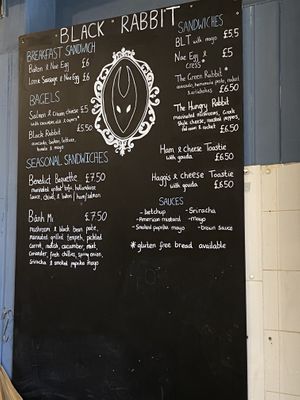 BLACK RABBIT
BREAKFAST SANDWICH
Bacon & Noe Egg £6
Lorne Sausage & Noe Egg £6
BAGELS
Salmon & Cream Cheese £5
with cucumber, dill & capers*
Black Rabbit £5.50
avocado, bacon, lettuce,
tomato & mayo
SEASONAL SANDWICHES
Benedict Baguette £7.50
marinated grilled tofu, hollandaise
sauce, chives, & bacon/ham/salmon
Bánh Mì £7.50
mushroom & black bean pate,
marinated grilled tempeh, pickled
carrot, radish, cucumber, mint,
coriander, fresh chillies, spring onion,
sriracha & smoked paprika mayo
SANDWICHES
BLT with mayo £5.5
Noe Egg & £5
Cress*
The Green Rabbit* £5.50
avocado, homemade pesto, rocket
& pistachio
The Hungry Rabbit
marinated mushrooms, Greek
style cheese, roasted peppers,
red onion & rocket £6.50
Ham & Cheese Toastie
with gouda £6.50
Haggis & Cheese Toastie
with gouda £6.50
SAUCES
- ketchup - Sriracha
- American mustard - mayo
- Smoked paprika mayo - brown sauce
* gluten free bread available